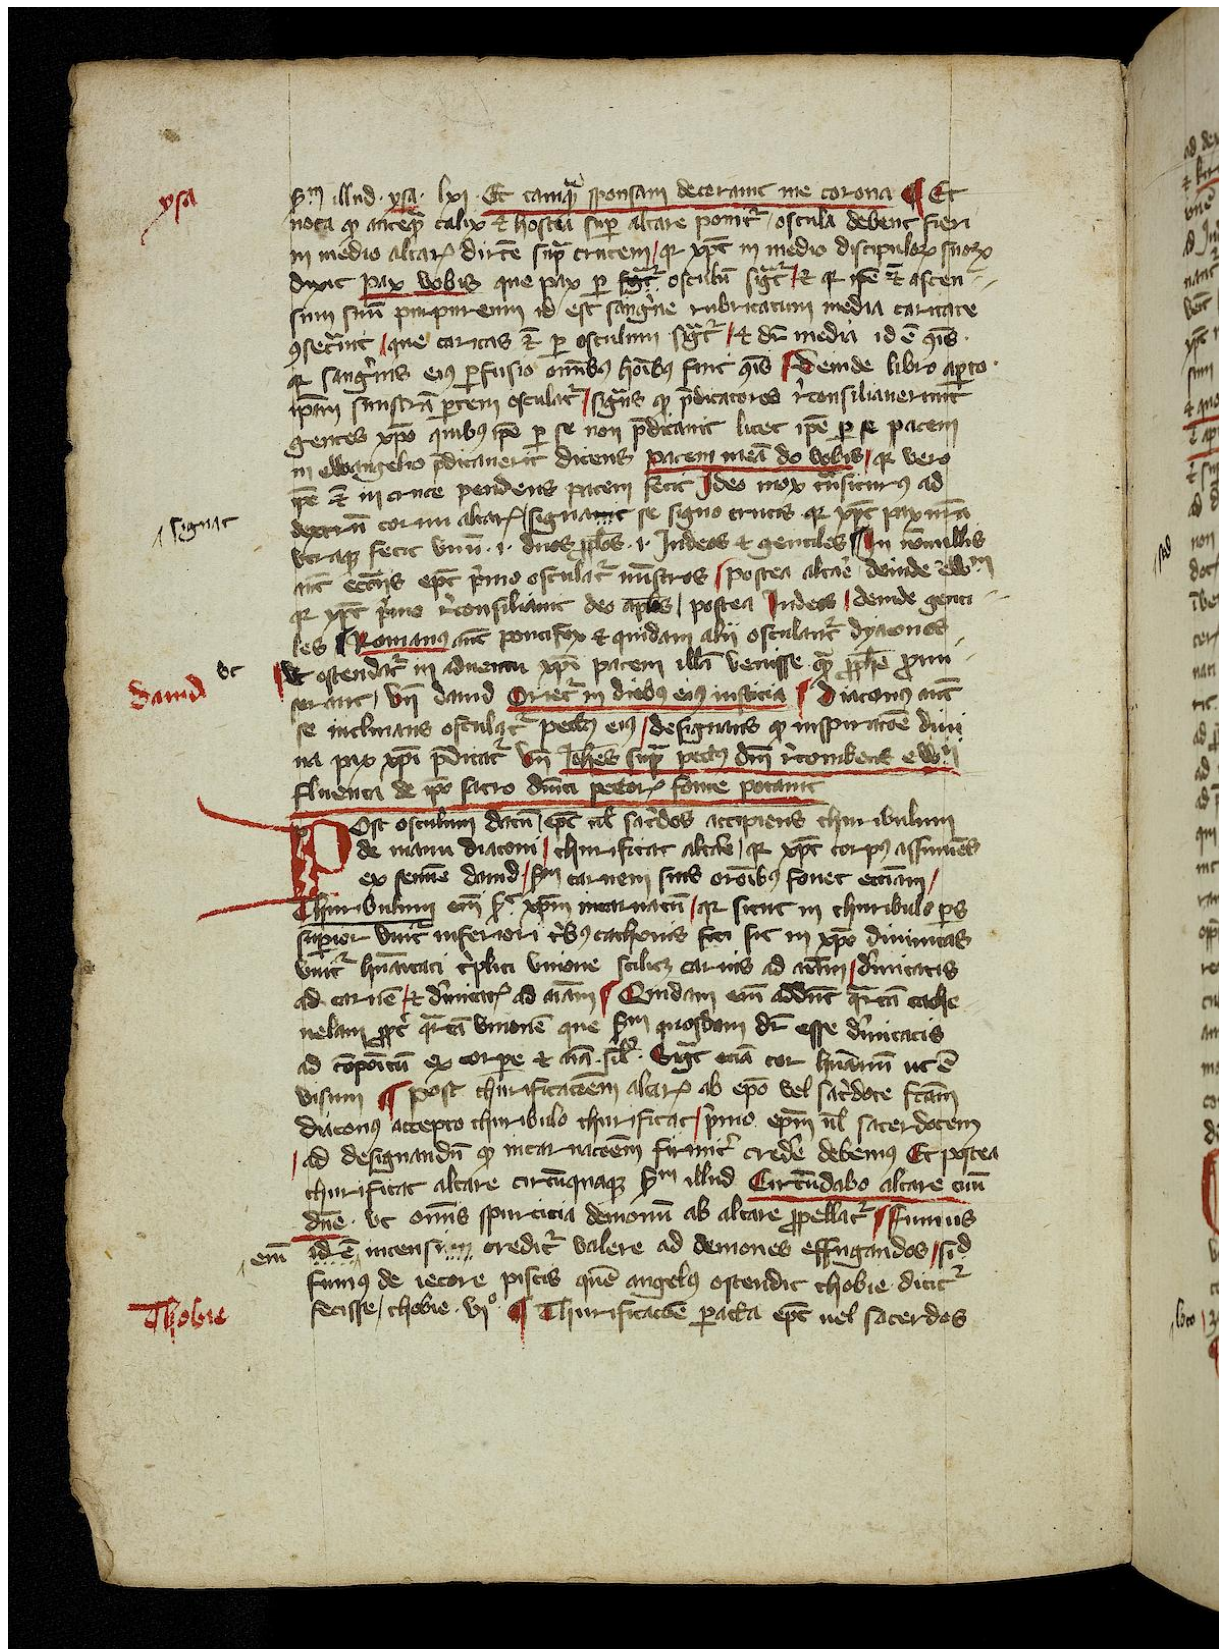 ysa
sm illud · ysa · lxi · Et tamqᷓ sponsam decorauit me corona ¶ Et
nota qͦ anteqᷓ calix et hostia sup altare ponitᷣ / oscula debent fieri
in medio altarꝭ dirc̄te supᷓ crucem / qꝛ xp̄c in medio discipuloꝝ suoꝝ
dixit pax vobis que pax per osculū sigᷓtᷣ / et qꝛ ip̄e etᷓ ascen
sum suū purpureum id est sangᷤne rubricatum media caritate
ꝯsecᷓuit / que caritas etᷓ ꝑ osculum sigᷓtᷣ / et dr̄ media id ē ꝯīs ·
qꝛ sangᷤnis eiꝰ ꝑfusio omībꝰ hoībꝰ fuit ꝯīs ¶ Deinde libro aꝑto ·
ipᷓm sinistrā ꝑtem osculatᷣ / sigᷓns qͦ p̄dicatores rͨconsiliauerunt
gentes xp̄o quibꝰ ip̄e ꝑ se non p̄dicauit licet ip̄e ꝑ se pacem
in ewangelio p̄dicauerit dicens pacem meā do vobis / qꝛ vero
ip̄e etᷓ in cruce pendens pacem fecit Ideo mox tᷓnsiturꝰ ad
signat
dextrū cornu altarꝭ / signauit se signo crucis · qꝛ xp̄c pax nr̄a
vtraqꝫ fecit vnū · i · duos pp̄los · i · Iudeos et gentiles ¶ In nōnullis
aūt ecc̄iis ep̄c pᷤmo osculatᷣ mīstros / postea altaꝛe deinde ewm
qꝛ xp̄c pᷤmo rͨconsiliauit deo ap̄los / postea Iudeos / deinde genti
les ¶ Romanus aūt pontifex et quidam alii osculantᷣ dyaconos
vt
ut ostendatᷣ in aduentu xp̄i pacem illā venisse quā pp̄he p̄nun
dauid
ciarant / vn̄ dauid Orietᷣ in diebꝰ eiꝰ iusticia ¶ Diaconus aūt
se inclinans osculatᷣ pectꝰ eiꝰ / designans qͦ inspiratōe diui
na pax xp̄i p̄dicatᷣ vn̄ Ioh̄es supᷓ pectꝰ dn̄i rͨcumbens ewᷓii
fluenta de ip̄o sacro dn̄ici pectorꝭ fonte potauit
POst osculum datū / ep̄c ul̄ sacᷤdos accipiens thuribulum
de manu diaconi / thurificat altaꝛe / qꝛ xp̄c corpꝰ assumēs
ex semīe dauid / sm carnem suis oroībꝰ fouet ecc̄iam /
Thuribulum em̄ sigᷓt xp̄m incarnatū / qꝛ sicut in thuribulo ꝑs
superior vnitᷣ inferiori tᷤbꝰ cathenis sic in xp̄o diuinitas
vnitᷣ hūaitati tᷤplici vnione scilicet carnis ad aīam / dᷤuitatis
ad carnē / et dᷤuitatꝭ ad aīam ¶ Quidam em̄ addūt qᷓrtā cathe
nelam ꝓpt qᷓrtā vnionē que sm quosdam dr̄ esse dᷤuitatis
ad cōpoītū ex corpe et aīa · sil̄ · Sigᷓt eciā cor hūanū ut ē
visum ¶ Post thurificatōem altarꝭ ab ep̄o vel sacᷤdote fc̄am
diaconꝰ accepto thuribulo thurificat / pᷤmo ep̄m ul̄ sacerdotem
/ ad designandū qͦ incarnatōem firmitᷣ credᷤe debemꝰ Et postea
thurificat altare circūquaqꝫ sm illud Circūdabo altare tuū
dn̄e · vt om̄is spurcicia demonū ab altare ꝓpellatᷣ ¶ Fumus
em̄
id ē incensi creditᷣ valere ad demones effugandos / sic̄
fumꝰ de iecore piscis quē angelꝰ ostendit thobie dicitᷣ
Thobie
fecisse / thobie · vi° · ¶ Thurificatōe ꝑacta ep̄c uel sacerdos